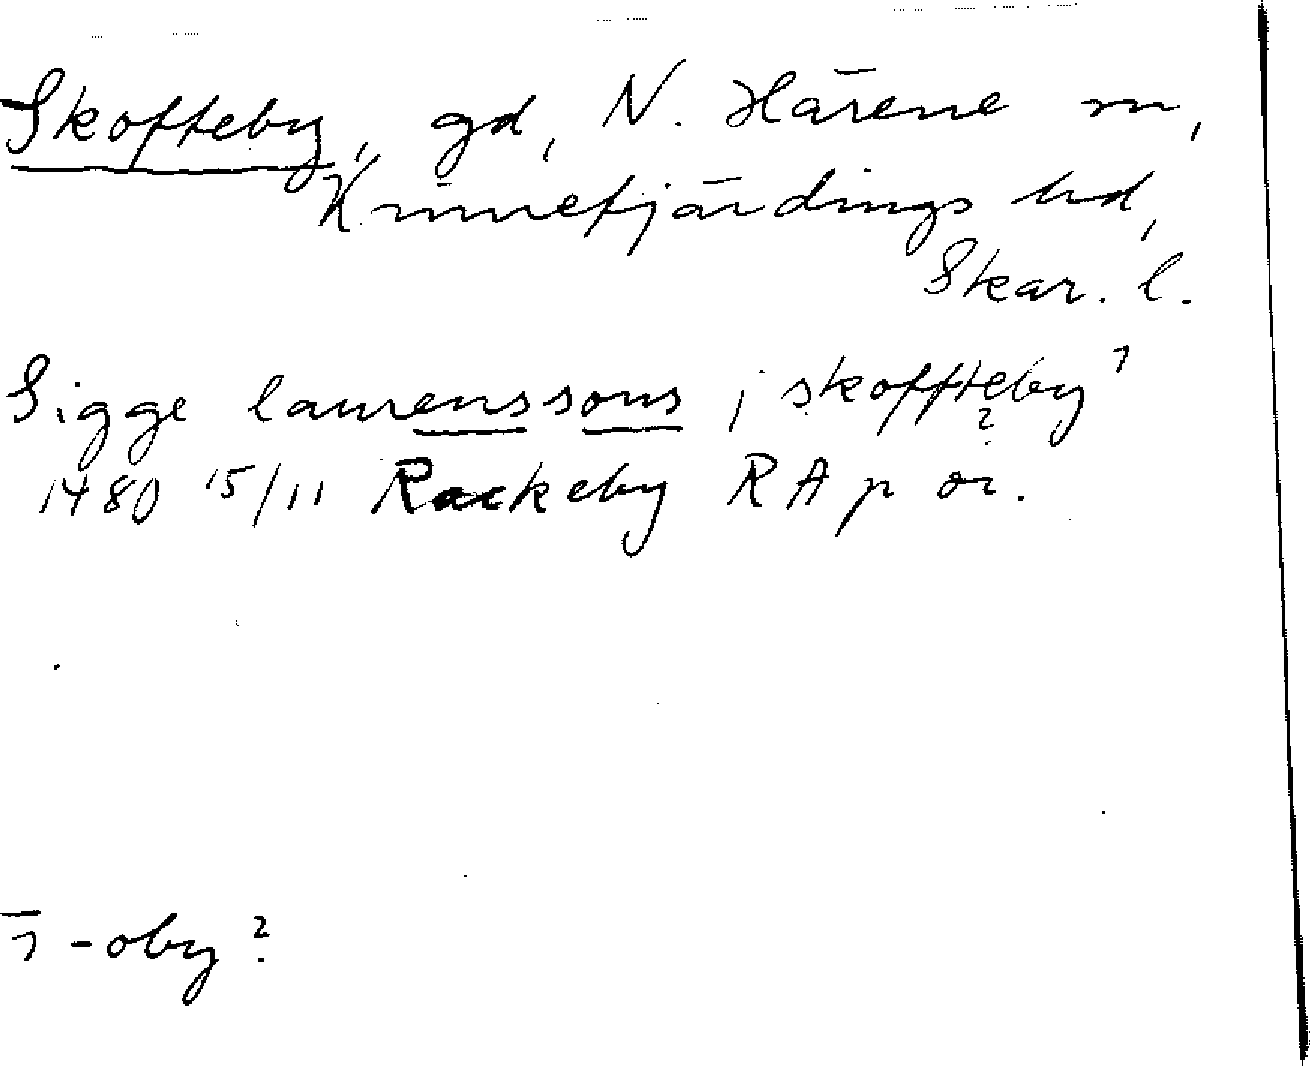 Skofteby, gd, N. Härene sn,
Kinnefjärdings hd,
Skar. l.
Sigge laurenssons j skoffteby 1
?
1480 15/11 Rackeby RAp or.
1 -oby?